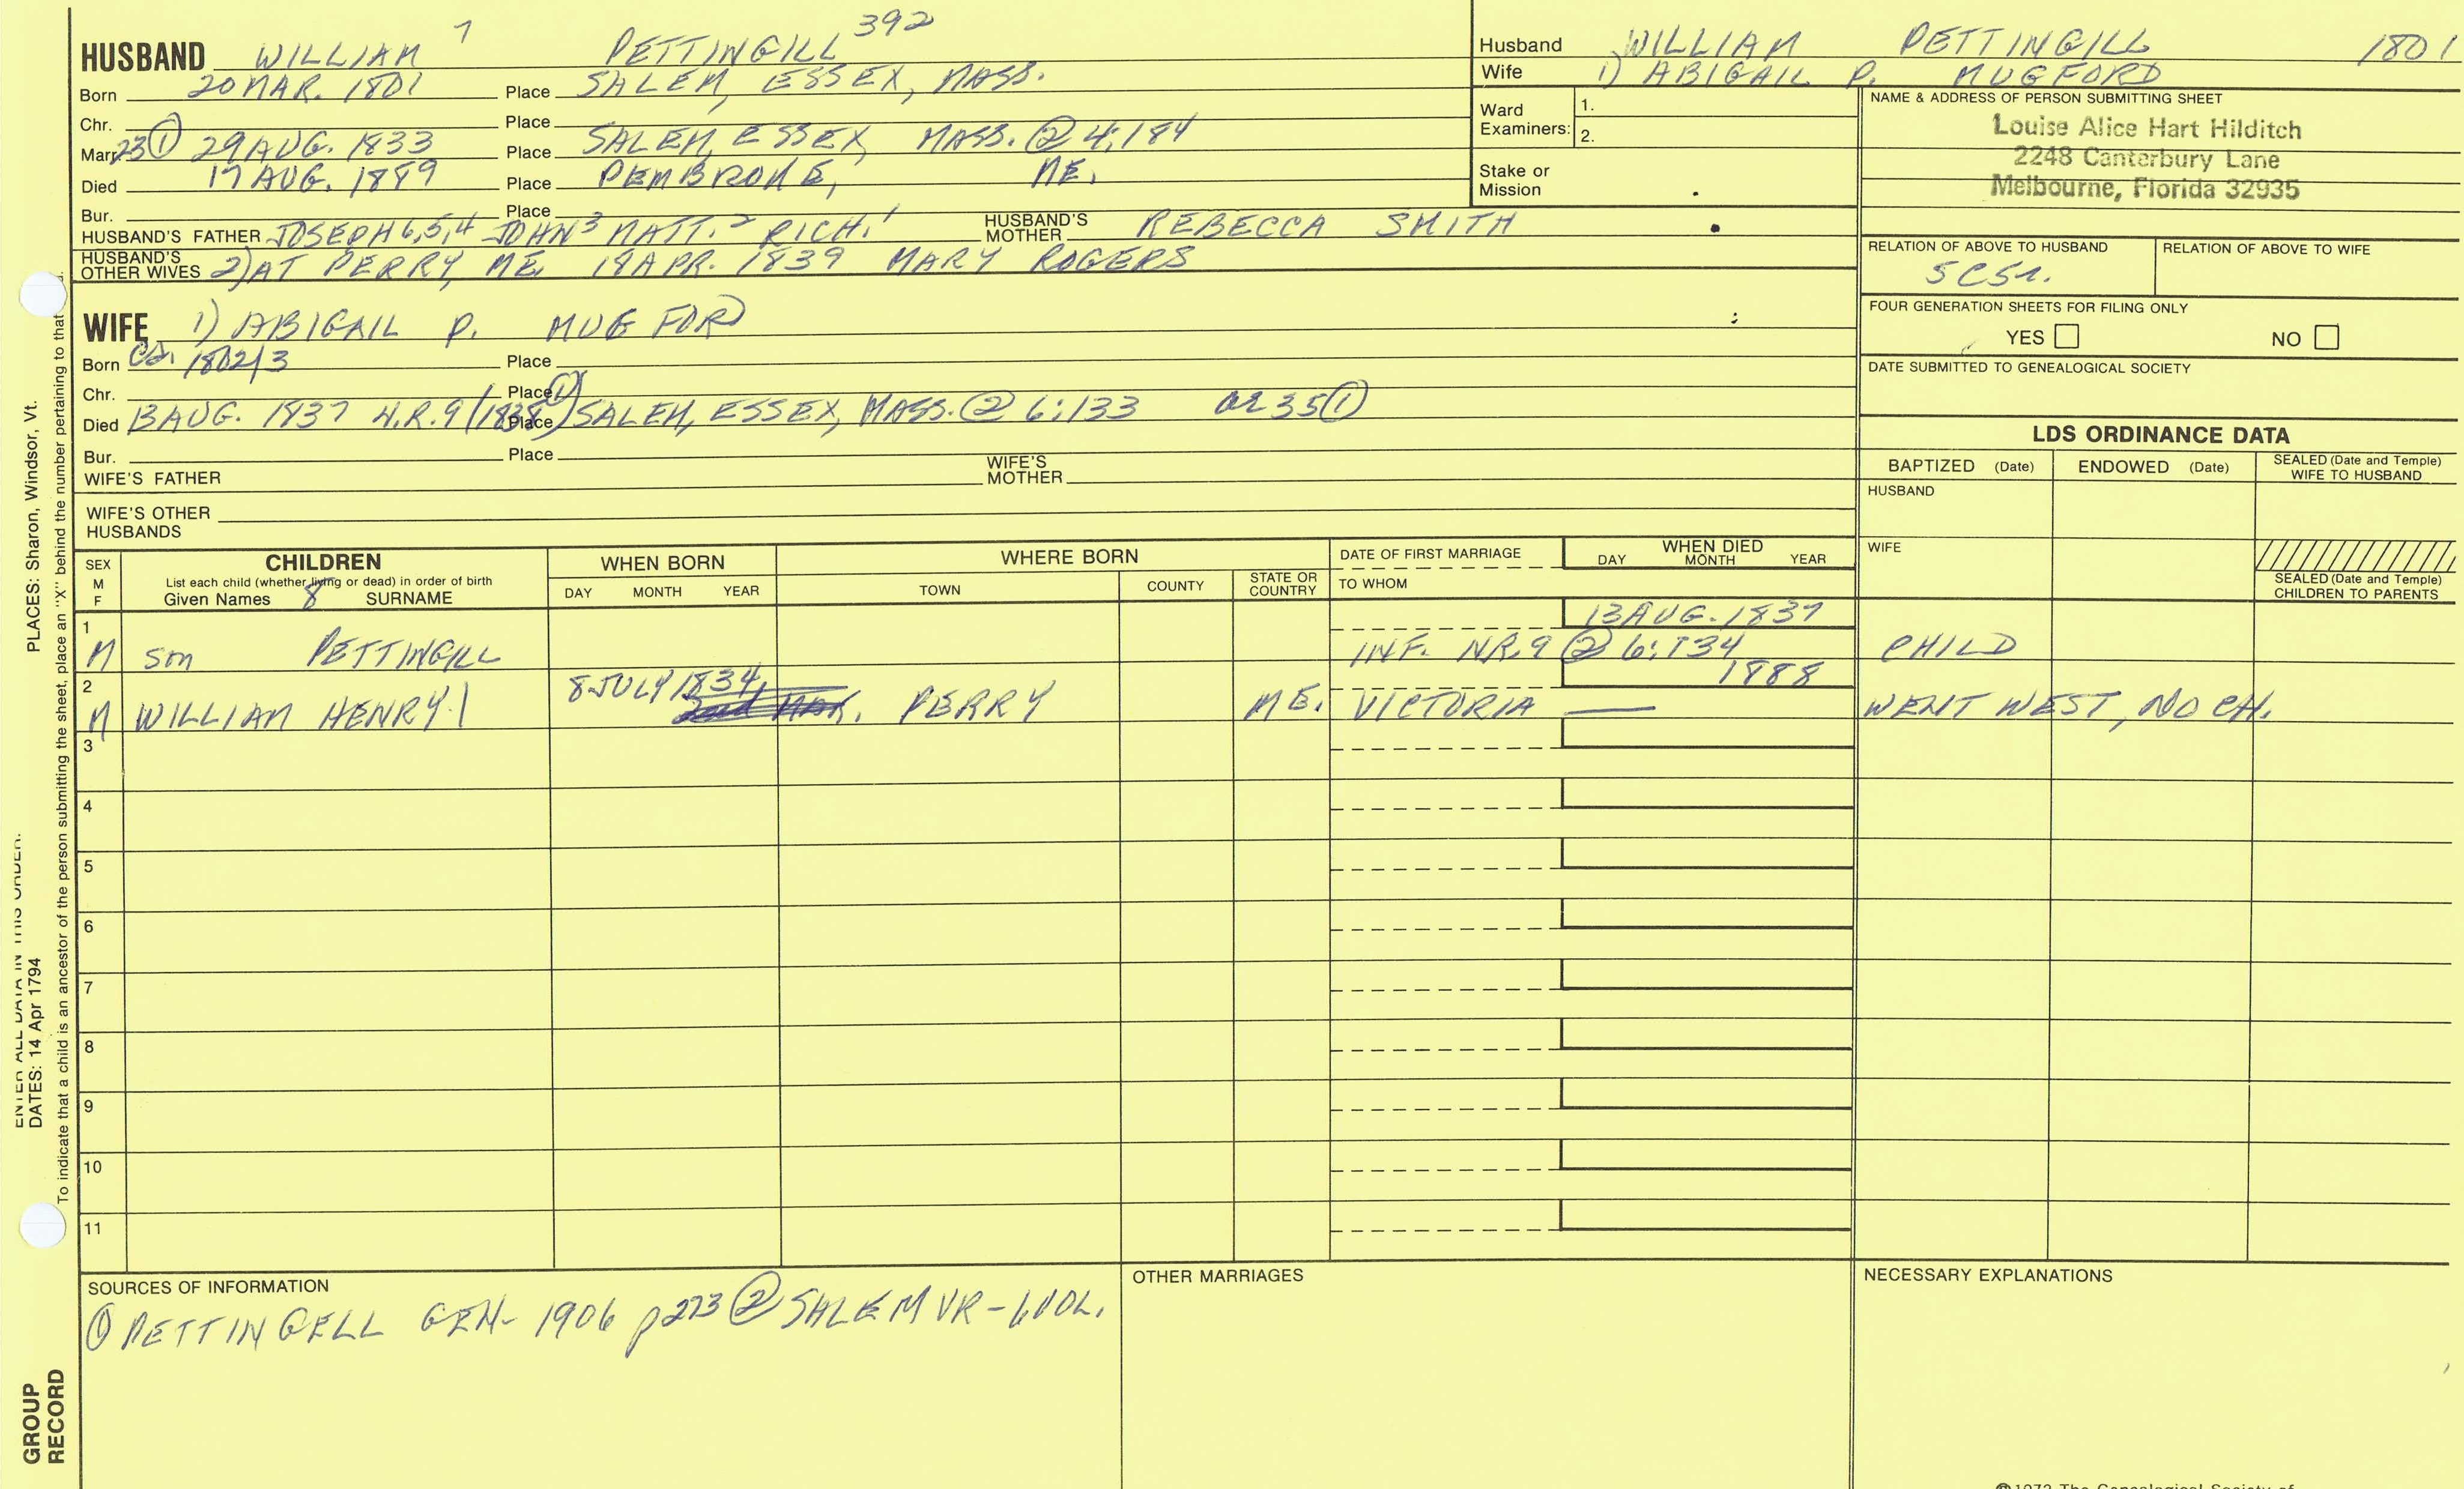 HUSBAND WILLIAM 7 PETTINGILL 392
Born 20 MAR. 1801 Place SALEM, ESSEX, MASS.
Chr. Place
Marr. 23 ① 29 AUG. 1833 Place SALEM, ESSEX, MASS. ② 4:184
Died Place PEMBROKE, ME.
Bur. Place
HUSBAND'S FATHER JOSEPH 6,5,4 JOHN 3 MATT. 2 RICH. 1 HUSBAND'S MOTHER REBECCA SMITH
HUSBAND'S OTHER WIVES 2) AT PERRY, ME. APR. 1839 MARY ROGERS
Husband WILLIAM PETTINGILL 1801
Wife 1) ABIGAIL P. MUGFORD
Ward Examiners: 1.
2.
Stake or Mission
NAME & ADDRESS OF PERSON SUBMITTING SHEET
Louise Alice Hart Hilditch
2248 Canterbury Lane
Melbourne, Florida 32935
RELATION OF ABOVE TO HUSBAND RELATION OF ABOVE TO WIFE
FOUR GENERATION SHEETS FOR FILING ONLY
YES NO
DATE SUBMITTED TO GENEALOGICAL SOCIETY
WIFE 1) ABIGAIL P. MUGFORD
Born ca. 1802/3 Place
Chr. Place
Died 13 AUG. 1837 N.R. 9 (1838 ①) Place SALEM, ESSEX, MASS. ② 6:133 ae 35 ①
Bur. Place
WIFE'S FATHER WIFE'S MOTHER
WIFE'S OTHER HUSBANDS
LDS ORDINANCE DATA
BAPTIZED (Date) ENDOWED (Date) SEALED (Date and Temple) WIFE TO HUSBAND
HUSBAND
WIFE
SEALED (Date and Temple) CHILDREN TO PARENTS
SEX M F
CHILDREN
List each child (whether living or dead) in order of birth
Given Names 8 SURNAME
WHEN BORN
DAY MONTH YEAR
WHERE BORN
TOWN COUNTY STATE OR COUNTRY
DATE OF FIRST MARRIAGE
TO WHOM
WHEN DIED
DAY MONTH YEAR
1 13 AUG. 1837
M son PETTINGILL INF. NR. 9 ② 6:134 CHILD
2 8 JULY 1834, 1888
M WILLIAM HENRY PERRY ME. VICTORIA — WENT WEST, NO CH.
3
4
5
6
7
8
9
10
11
SOURCES OF INFORMATION
① PETTINGELL GEN- 1906 p273 ② SALEM VR - 6 VOL.
OTHER MARRIAGES
NECESSARY EXPLANATIONS
PLACES: Sharon, Windsor, Vt.
ENTER ALL DATA IN THIS ORDER:
DATES: 14 Apr 1794
To indicate that a child is an ancestor of the person submitting the sheet, place an "X" behind the number pertaining to that
GROUP
RECORD
©1972 The Genealogical Society of